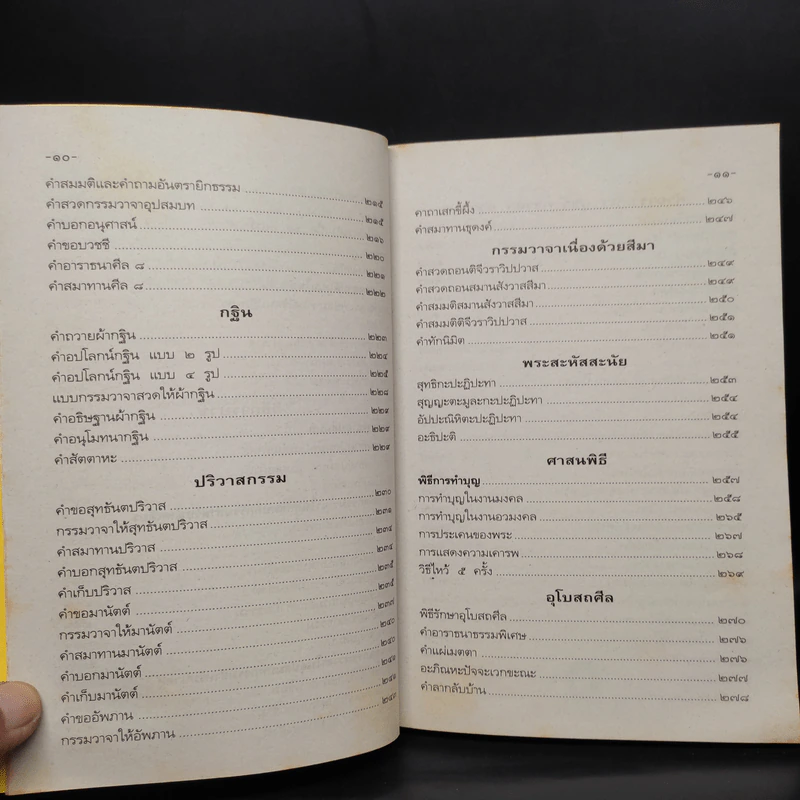 -๑๐-
คำสมมติและคำถามอันตรายิกธรรม ๒๑๕
คำสวดกรรมวาจาอุปสมบท ๒๑๕
คำบอกอนุศาสน์ ๒๑๖
คำขอบวชชี ๒๒๐
คำอาราธนาศีล ๘ ๒๒๑
คำสมาทานศีล ๘ ๒๒๒
กฐิน
คำถวายผ้ากฐิน ๒๒๓
คำอปโลกน์กฐิน แบบ ๒ รูป ๒๒๔
คำอปโลกน์กฐิน แบบ ๔ รูป ๒๒๕
แบบกรรมวาจาสวดให้ผ้ากฐิน ๒๒๘
คำอธิษฐานผ้ากฐิน ๒๒๙
คำอนุโมทนากฐิน ๒๒๙
คำสัตตาหะ ๒๒๙
ปริวาสกรรม
คำขอสุทธันตปริวาส ๒๓๐
กรรมวาจาให้สุทธันตปริวาส ๒๓๑
คำสมาทานปริวาส ๒๓๔
คำบอกสุทธันตปริวาส ๒๓๔
คำเก็บปริวาส ๒๓๕
คำขอมานัตต์ ๒๓๕
กรรมวาจาให้มานัตต์ ๒๓๗
คำสมาทานมานัตต์ ๒๔๐
คำบอกมานัตต์ ๒๔๐
คำเก็บมานัตต์ ๒๔๑
คำขออัพภาน ๒๔๑
กรรมวาจาให้อัพภาน
-๑๑-
คาถาเสกขี้ผึ้ง ๒๔๖
คำสมาทานธุดงค์ ๒๔๗
กรรมวาจาเนื่องด้วยสีมา
คำสวดถอนติจีวราวิปปวาส ๒๔๙
คำสวดถอนสมานสังวาสสีมา ๒๔๙
คำสมมติสมานสังวาสสีมา ๒๕๐
คำสมมติติจีวราวิปปวาส ๒๕๑
คำทักนิมิต ๒๕๑
พระสะหัสสะนัย
สุทธิกะปะฏิปะทา ๒๕๓
สุญญะตะมูละกะปะฏิปะทา ๒๕๔
อัปปะณิหิตะปะฏิปะทา ๒๕๔
อะธิปะติ ๒๕๕
ศาสนพิธี
พิธีการทำบุญ ๒๕๗
การทำบุญในงานมงคล ๒๕๘
การทำบุญในงานอวมงคล ๒๖๕
การประเคนของพระ ๒๖๗
การแสดงความเคารพ ๒๖๘
วิธีไหว้ ๕ ครั้ง ๒๖๙
อุโบสถศีล
พิธีรักษาอุโบสถศีล ๒๗๐
คำอาราธนาธรรมพิเศษ ๒๗๖
คำแผ่เมตตา ๒๗๖
อะภิณหะปัจจะเวกขะณะ ๒๗๗
คำลากลับบ้าน ๒๗๘